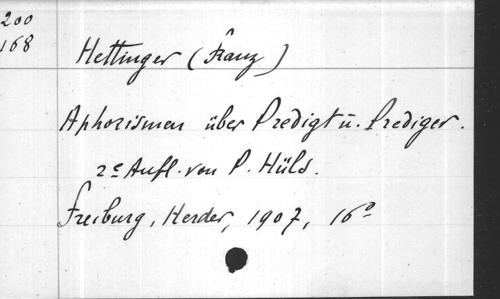 200
168
Hettinger (Franz)
Aphorismen über Predigt u. Prediger.
2e Aufl. von P. Hüls.
Freiburg, Herder, 1907, 16o